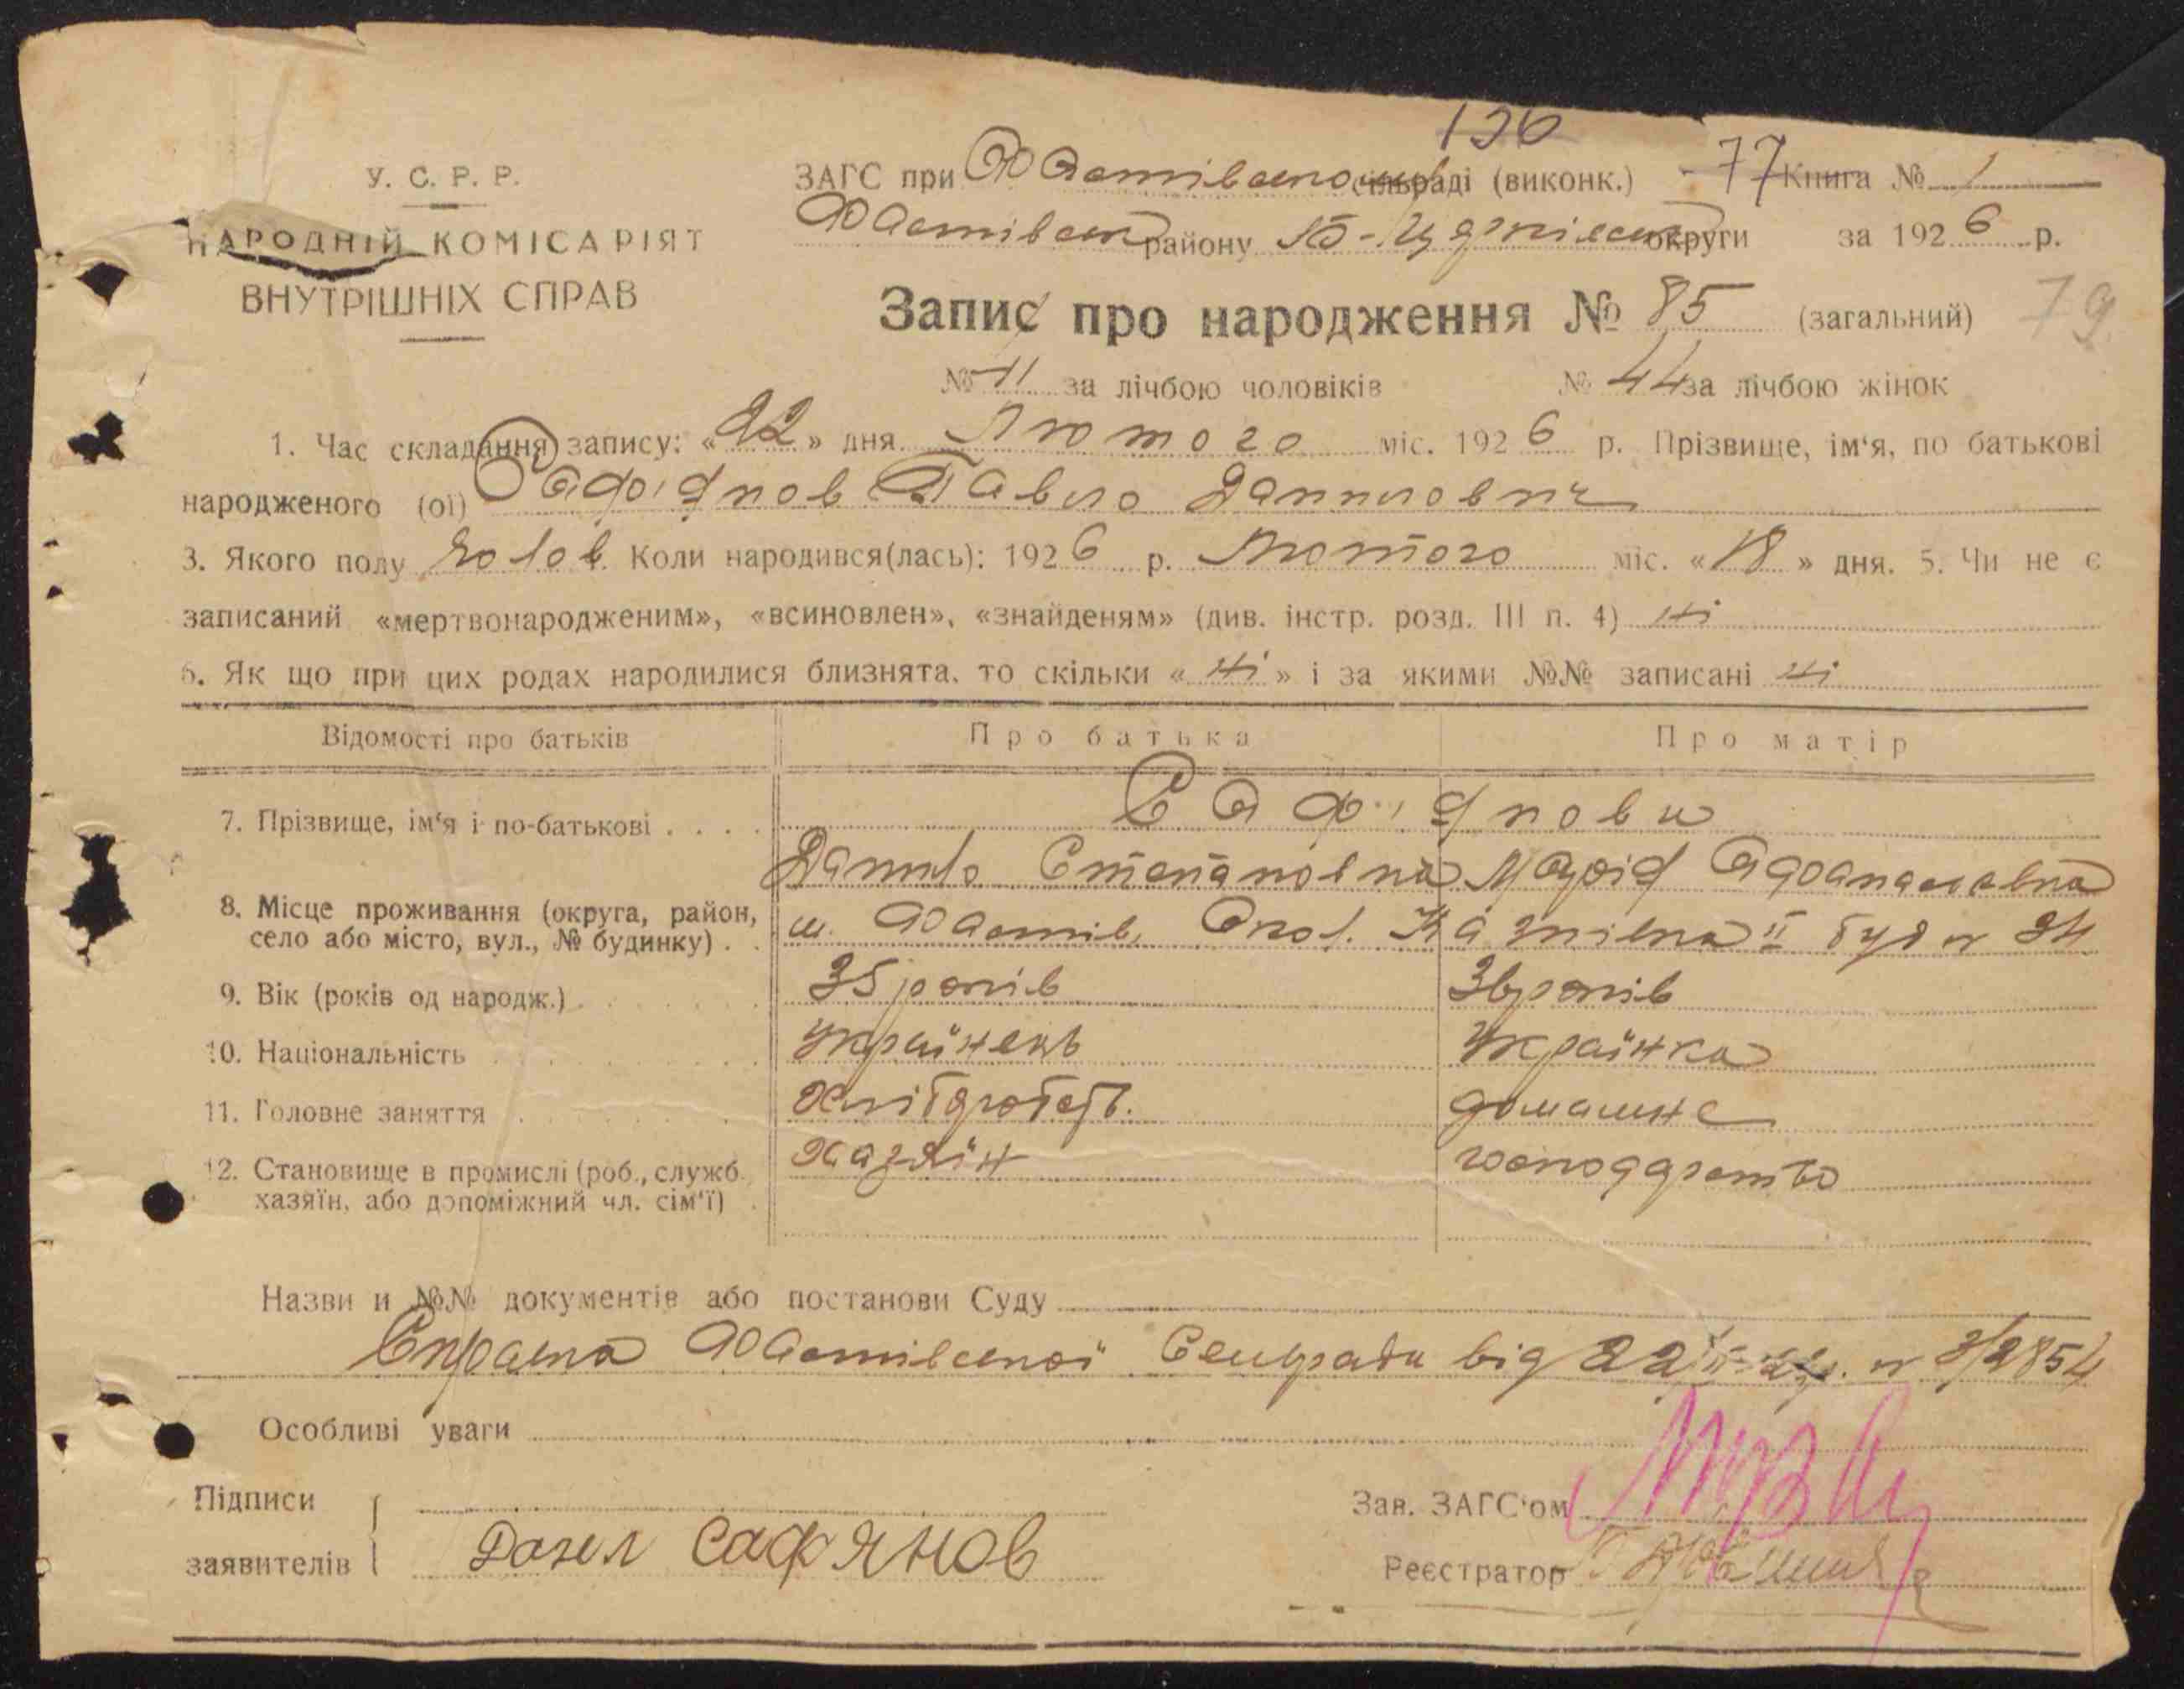 136
У. С. Р. Р.
ЗАГС при Фастівській сільраді (виконк.) 77 Книга № 1
НАРОДНІЙ КОМІСАРІЯТ
Фастівськ району Б-Церківськ округи за 1926 р.
ВНУТРІШНІХ СПРАВ
Запис про народження № 85 (загальний) 79
№ 41 за лічбою чоловіків № 44 за лічбою жінок
1. Час складання запису: «22» дня Лютого міс. 1926 р. Прізвище, ім'я, по батькові
народженого (ої) Сафіянов Павло Данилович
3. Якого полу чолов. Коли народився(лась): 1926 р. Лютого міс. «18» дня. 5. Чи не є
записаний «мертвонародженим», «всиновлен», «знайденям» (див. інстр. розд. III п. 4) ні
6. Як що при цих родах народилися близнята, то скільки «ні» і за якими №№ записані ні
Відомості про батьків Про батька Про матір
7. Прізвище, ім'я і по-батькові Сафіянови
Данило Степанович Марія Афанасівна
8. Місце проживання (округа, район, село або місто, вул., № будинку) м. Фастів, буд № 24
9. Вік (років од народж.) 35 років 36 років
10. Національність Українець Українка
11. Головне заняття хлібороб. домашнє
12. Становище в промислі (роб., служб. хазяїн, або допоміжний чл. сім'ї) хазяїн господарство
Назви и №№ документів або постанови Суду
Справка Фастівської Селищради від 22 № 3/2854
Особливі уваги
Підписи
заявителів
Данел Сафянов
Зав. ЗАГС'ом
Реєстратор